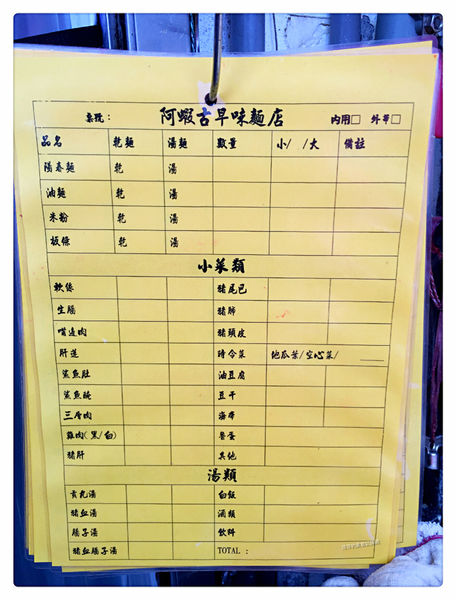 桌號: 阿蝦古早味麵店 內用□ 外帶□
品名 乾麵 湯麵 數量 小/ /大 備註
陽春麵 乾 湯
油麵 乾 湯
米粉 乾 湯
板條 乾 湯
小菜類
軟絲 豬尾巴
生腸 豬肺
嘴邊肉 豬頭皮
肝連 時令菜 地瓜葉/空心菜/
鯊魚肚 油豆腐
鯊魚醃 豆干
三層肉 海帶
雞肉(黑/白) 魯蛋
豬肝 其他
湯類
貢丸湯 白飯
豬血湯 酒類
腸子湯 飲料
豬血腸子湯 TOTAL :